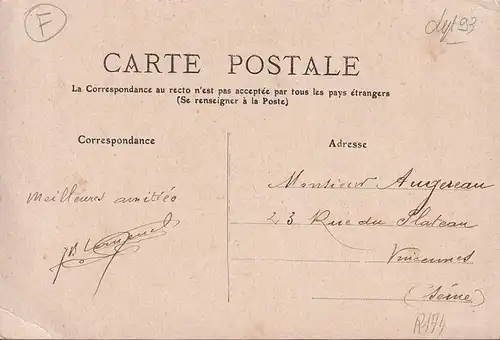 F
dept 93
CARTE POSTALE
La Correspondance au recto n'est pas acceptée par tous les pays étrangers
(Se renseigner à la Poste)
Correspondance
Adresse
Meilleures amitiés
Monsieur Augereau
23 Rue du Plateau
Vincennes
(Seine)
R174